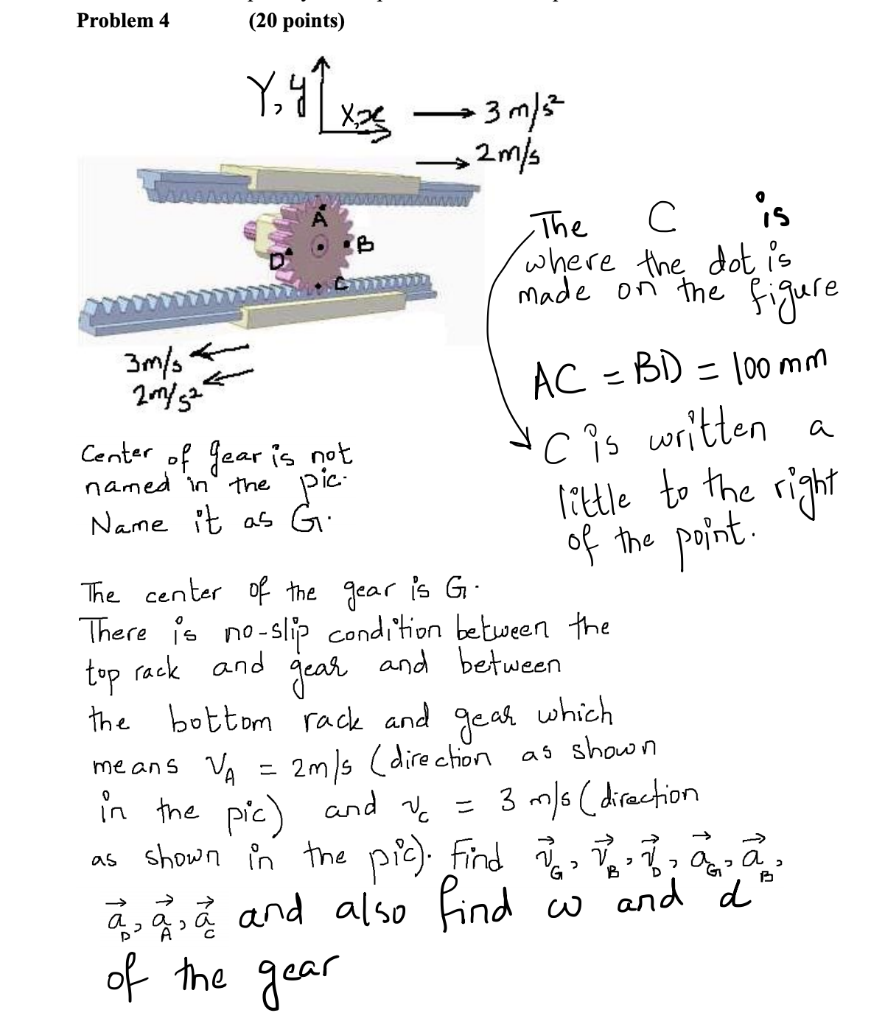 Problem 4 (20 points)
Y,y
X,x
→ 3 m/s²
→ 2m/s
A
B
D
C
3m/s ←
2m/s² ←
The C is
where the dot is
made on the figure
AC = BD = 100 mm
C is written a
little to the right
of the point.
Center of gear is not
named in the pic.
Name it as G.
The center of the gear is G.
There is no-slip condition between the
top rack and gear and between
the bottom rack and gear which
means V_A = 2m/s (direction as shown
in the pic) and v_c = 3 m/s (direction
as shown in the pic). Find v⃗_G, v⃗_B, v⃗_D, a⃗_G, a⃗_B,
a⃗_D, a⃗_A, a⃗_C and also find ω and α
of the gear